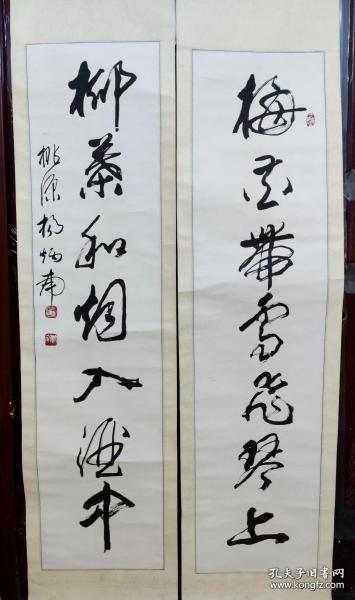 梅花带雪飞琴上
柳叶和烟入酒中
桃源杨炳南
孔夫子旧书网
www.kongfz.com